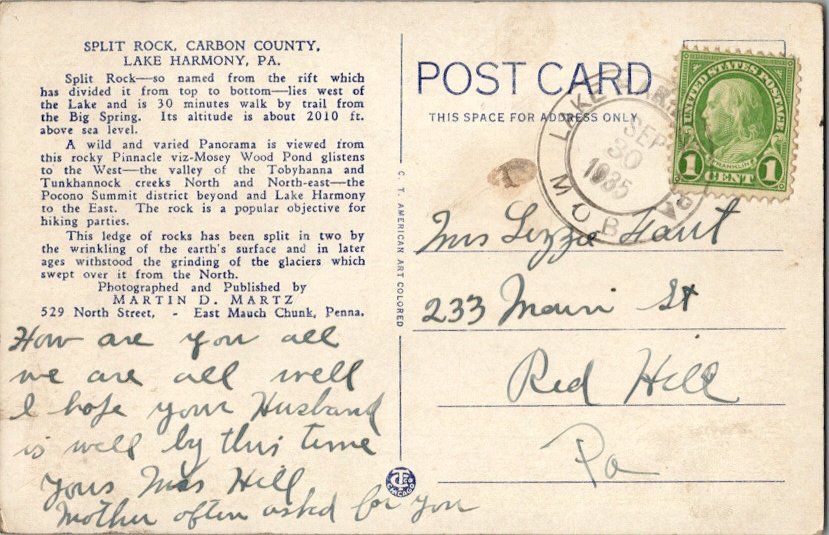 SPLIT ROCK, CARBON COUNTY,
LAKE HARMONY, PA.
Split Rock—so named from the rift which
has divided it from top to bottom—lies west of
the Lake and is 30 minutes walk by trail from
the Big Spring. Its altitude is about 2010 ft.
above sea level.
A wild and varied Panorama is viewed from
this rocky Pinnacle viz-Mosey Wood Pond glistens
to the West—the valley of the Tobyhanna and
Tunkhannock creeks North and North-east—the
Pocono Summit district beyond and Lake Harmony
to the East. The rock is a popular objective for
hiking parties.
This ledge of rocks has been split in two by
the wrinkling of the earth's surface and in later
ages withstood the grinding of the glaciers which
swept over it from the North.
Photographed and Published by
MARTIN D. MARTZ
529 North Street, - East Mauch Chunk, Penna.
How are you all
we are all well
I hope your Husband
is well by this time
yous Mrs Hill
Mother often asked for you
C. T. AMERICAN ART COLORED
CHICAGO
POST CARD
THIS SPACE FOR ADDRESS ONLY
LAKE
SEP
30
1935
UNITED STATES POSTAGE
FRANKLIN
1 CENT 1
Mrs Lizzie
233 Main St
Red Hill
Pa